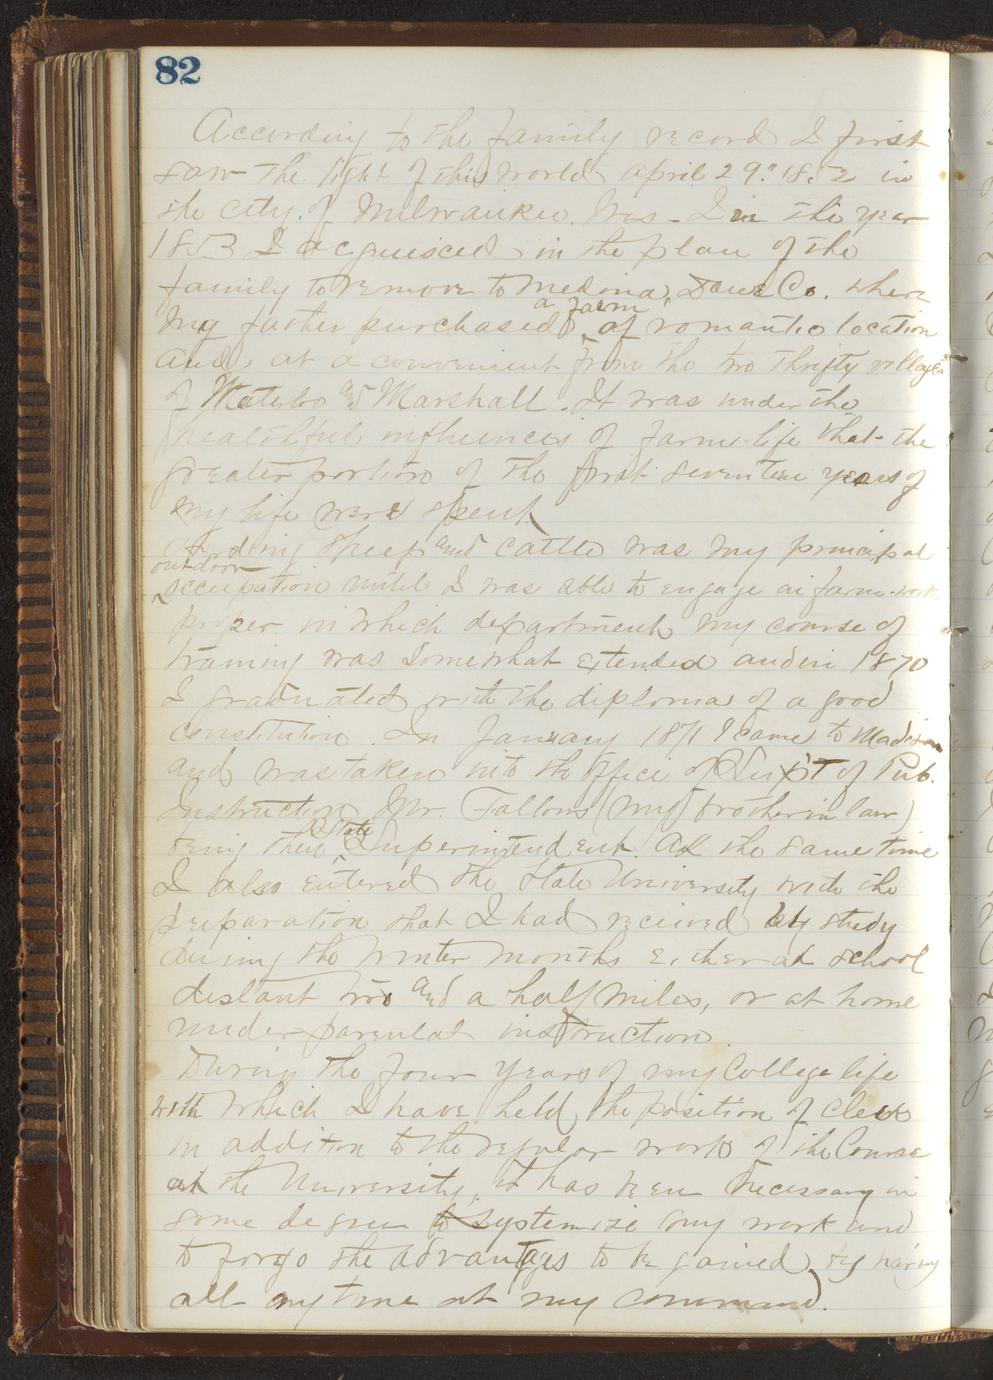 82
According to the family record I first
saw the light of this world april 29." 1852 in
the city of Milwaukee. Wis - I in the year
1853 I acquiesced in the plan of the
family to remove to Medina, Dane Co. where
my father purchased a farm of romantic location
and at a convenient from the two thrifty villages
of Waterloo and Marshall. It was under the
healthful influences of farm-life that the
greater portion of the first seventeen years of
my life were spent.
Herding sheep and cattle was my principal
outdoor
occupation until I was able to engage in farm-work
proper in which department my course of
training was somewhat extended and in 1870
I graduated with the diploma of a good
constitution. In January 1871 I came to Madison
and was taken into the office of Sup't of Pub.
Instruction Mr. Fallows (my brother in law)
being then State Superintendent. At the same time
I also entered the State University with the
preparation that I had received by study
during the winter months either at school
distant two and a half miles, or at home
under parental instruction.
During the four years of my College life
with which I have held the position of Clerk
in addition to the regular work of the Course
at the University, it has been necessary in
some degree to systemize my work and
to forgo the advantages to be gained by having
all my time at my command.